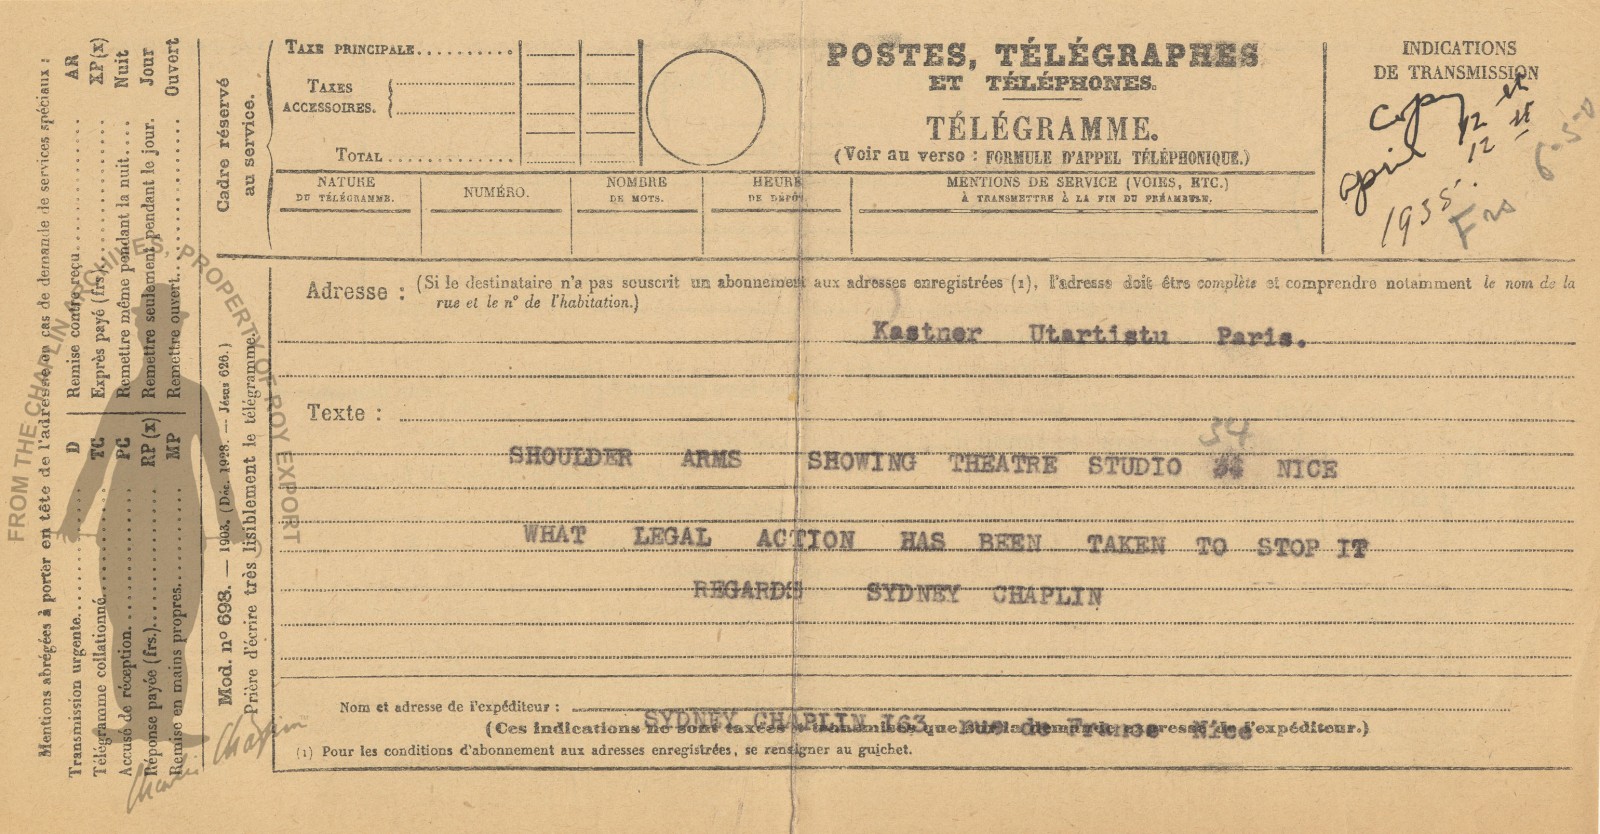 TAXE PRINCIPALE..........
TAXES
ACCESSOIRES.
TOTAL ............
POSTES, TÉLÉGRAPHES
ET TÉLÉPHONES.
TÉLÉGRAMME.
(Voir au verso : FORMULE D'APPEL TÉLÉPHONIQUE.)
INDICATIONS
DE TRANSMISSION
Copy
April 12
12
1935.
6.50
Frs
Cadre réservé
au service.
NATURE
DU TÉLÉGRAMME.
NUMÉRO.
NOMBRE
DE MOTS.
HEURE
DE DÉPÔT.
MENTIONS DE SERVICE (VOIES, ETC.)
À TRANSMETTRE À LA FIN DU PRÉAMBULE.
Adresse : (Si le destinataire n'a pas souscrit un abonnement aux adresses enregistrées (1), l'adresse doit être complète et comprendre notamment le nom de la
rue et le n° de l'habitation.)
Kastner Utartistu Paris.
Texte :
34
SHOULDER ARMS SHOWING THEATRE STUDIO NICE
WHAT LEGAL ACTION HAS BEEN TAKEN TO STOP IT
REGARDS SYDNEY CHAPLIN
Nom et adresse de l'expéditeur :
SYDNEY CHAPLIN 163 rue de France Nice
(Ces indications ne sont taxées et transmises que sur la demande expresse de l'expéditeur.)
(1) Pour les conditions d'abonnement aux adresses enregistrées, se renseigner au guichet.
Mentions abrégées à porter en tête de l'adresse en cas de demande de services spéciaux :
Transmission urgente....... D
Remise contre reçu.......... AR
Télégramme collationné....... TC
Exprès payé (frs.)........ XP (x)
Accusé de réception.......... PC
Remettre même pendant la nuit.... Nuit
Réponse payée (frs.)........ RP (x)
Remettre seulement pendant le jour. Jour
Remise en mains propres....... MP
Remettre ouvert.......... Ouvert
Mod. n° 698. — 1903. (Déc. 1928. — Jésus 626.)
Prière d'écrire très lisiblement le télégramme.
FROM THE CHAPLIN ARCHIVES, PROPERTY OF ROY EXPORT
Charlie Chaplin